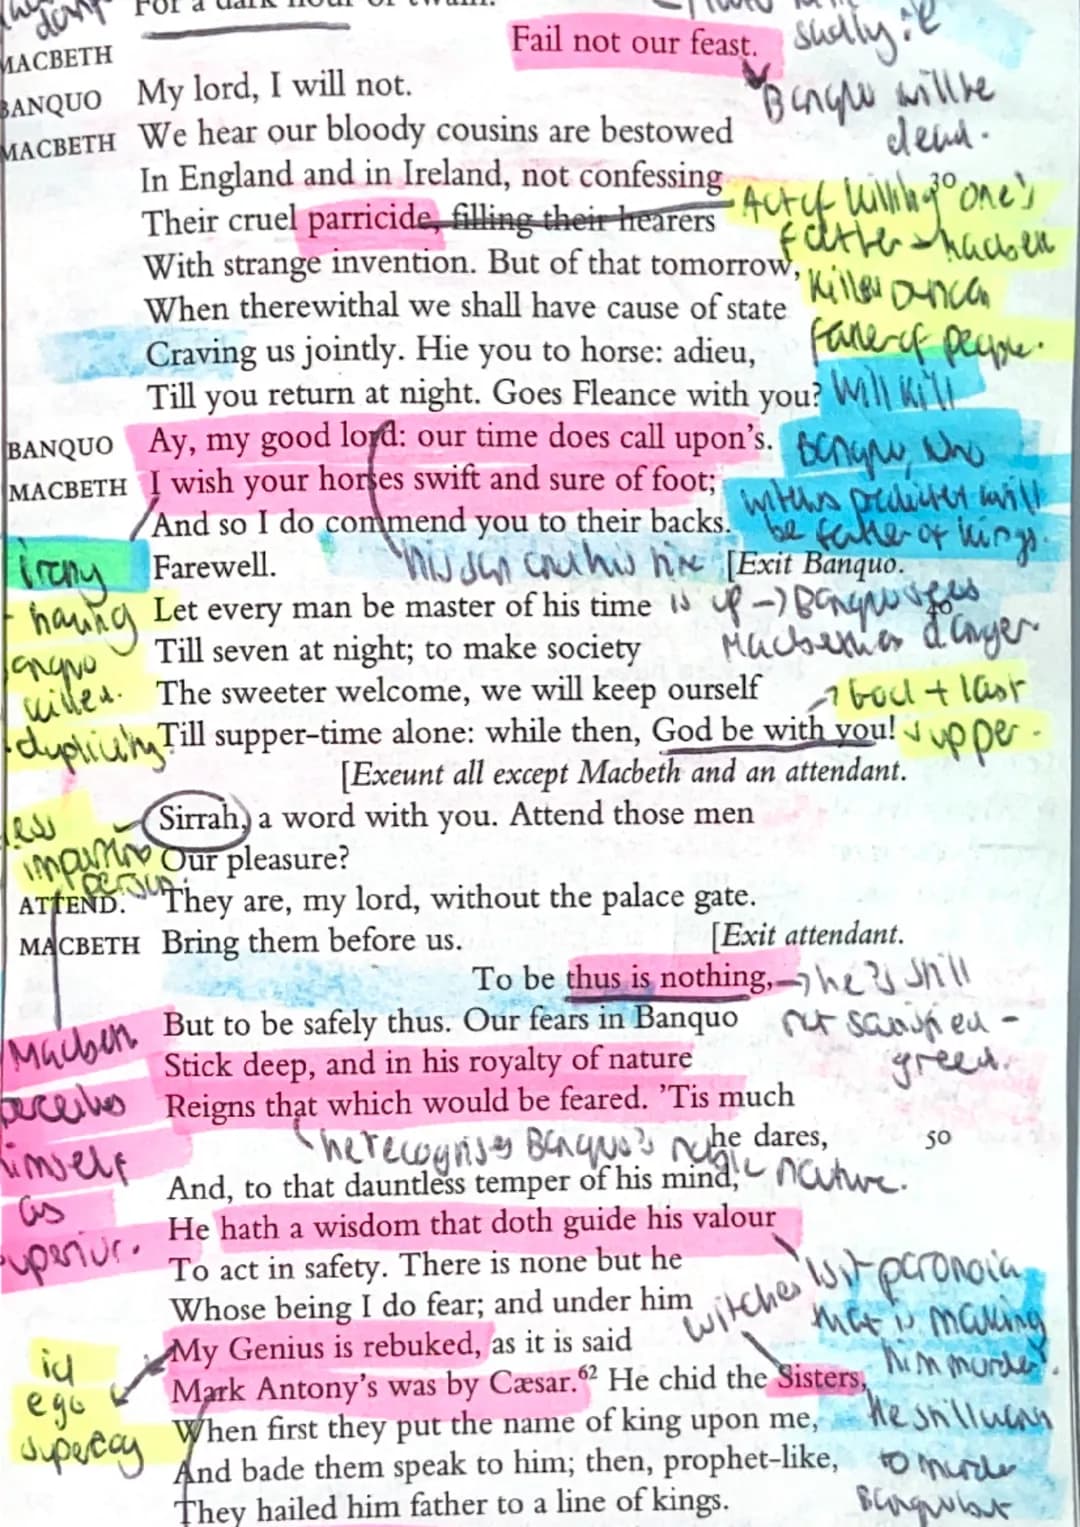 For a dark hour or twain.
MACBETH Fail not our feast.
BANQUO My lord, I will not.
Banquo will be
dead.
MACBETH We hear our bloody cousins are bestowed
In England and in Ireland, not confessing 30
Their cruel parricide, filling their hearers
With strange invention. But of that tomorrow,
When therewithal we shall have cause of state
Craving us jointly. Hie you to horse: adieu,
Till you return at night. Goes Fleance with you?
Act of killing one's
father
killed Duncan
of people.
BANQUO Ay, my good lord: our time does call upon's.
MACBETH I wish your horses swift and sure of foot;
And so I do commend you to their backs.
Farewell. [Exit Banquo.
will kill
Banquo, who
will
be father of kings.
irony
having
killed.
duplicity
Let every man be master of his time
Till seven at night; to make society 40
The sweeter welcome, we will keep ourself
Till supper-time alone: while then, God be with you!
is up → Banquo sees
danger
God + last
supper.
[Exeunt all except Macbeth and an attendant.
Sirrah, a word with you. Attend those men
Our pleasure?
less
person.
ATTEND. They are, my lord, without the palace gate.
MACBETH Bring them before us. [Exit attendant.
To be thus is nothing,
But to be safely thus. Our fears in Banquo
Stick deep, and in his royalty of nature
Reigns that which would be feared. 'Tis much
he dares, 50
And, to that dauntless temper of his mind,
He hath a wisdom that doth guide his valour
To act in safety. There is none but he
Whose being I do fear; and under him
My Genius is rebuked, as it is said
Mark Antony's was by Cæsar.62 He chid the Sisters,
When first they put the name of king upon me,
And bade them speak to him; then, prophet-like,
They hailed him father to a line of kings.
→ he is still
not satisfied -
greed.
he recognises Banquo's noble nature.
Macbeth
perceives
himself
as
superior.
witches
is it paranoia
that is making
him murder?
he still wants
to murder
Banquo but
id
ego
superego